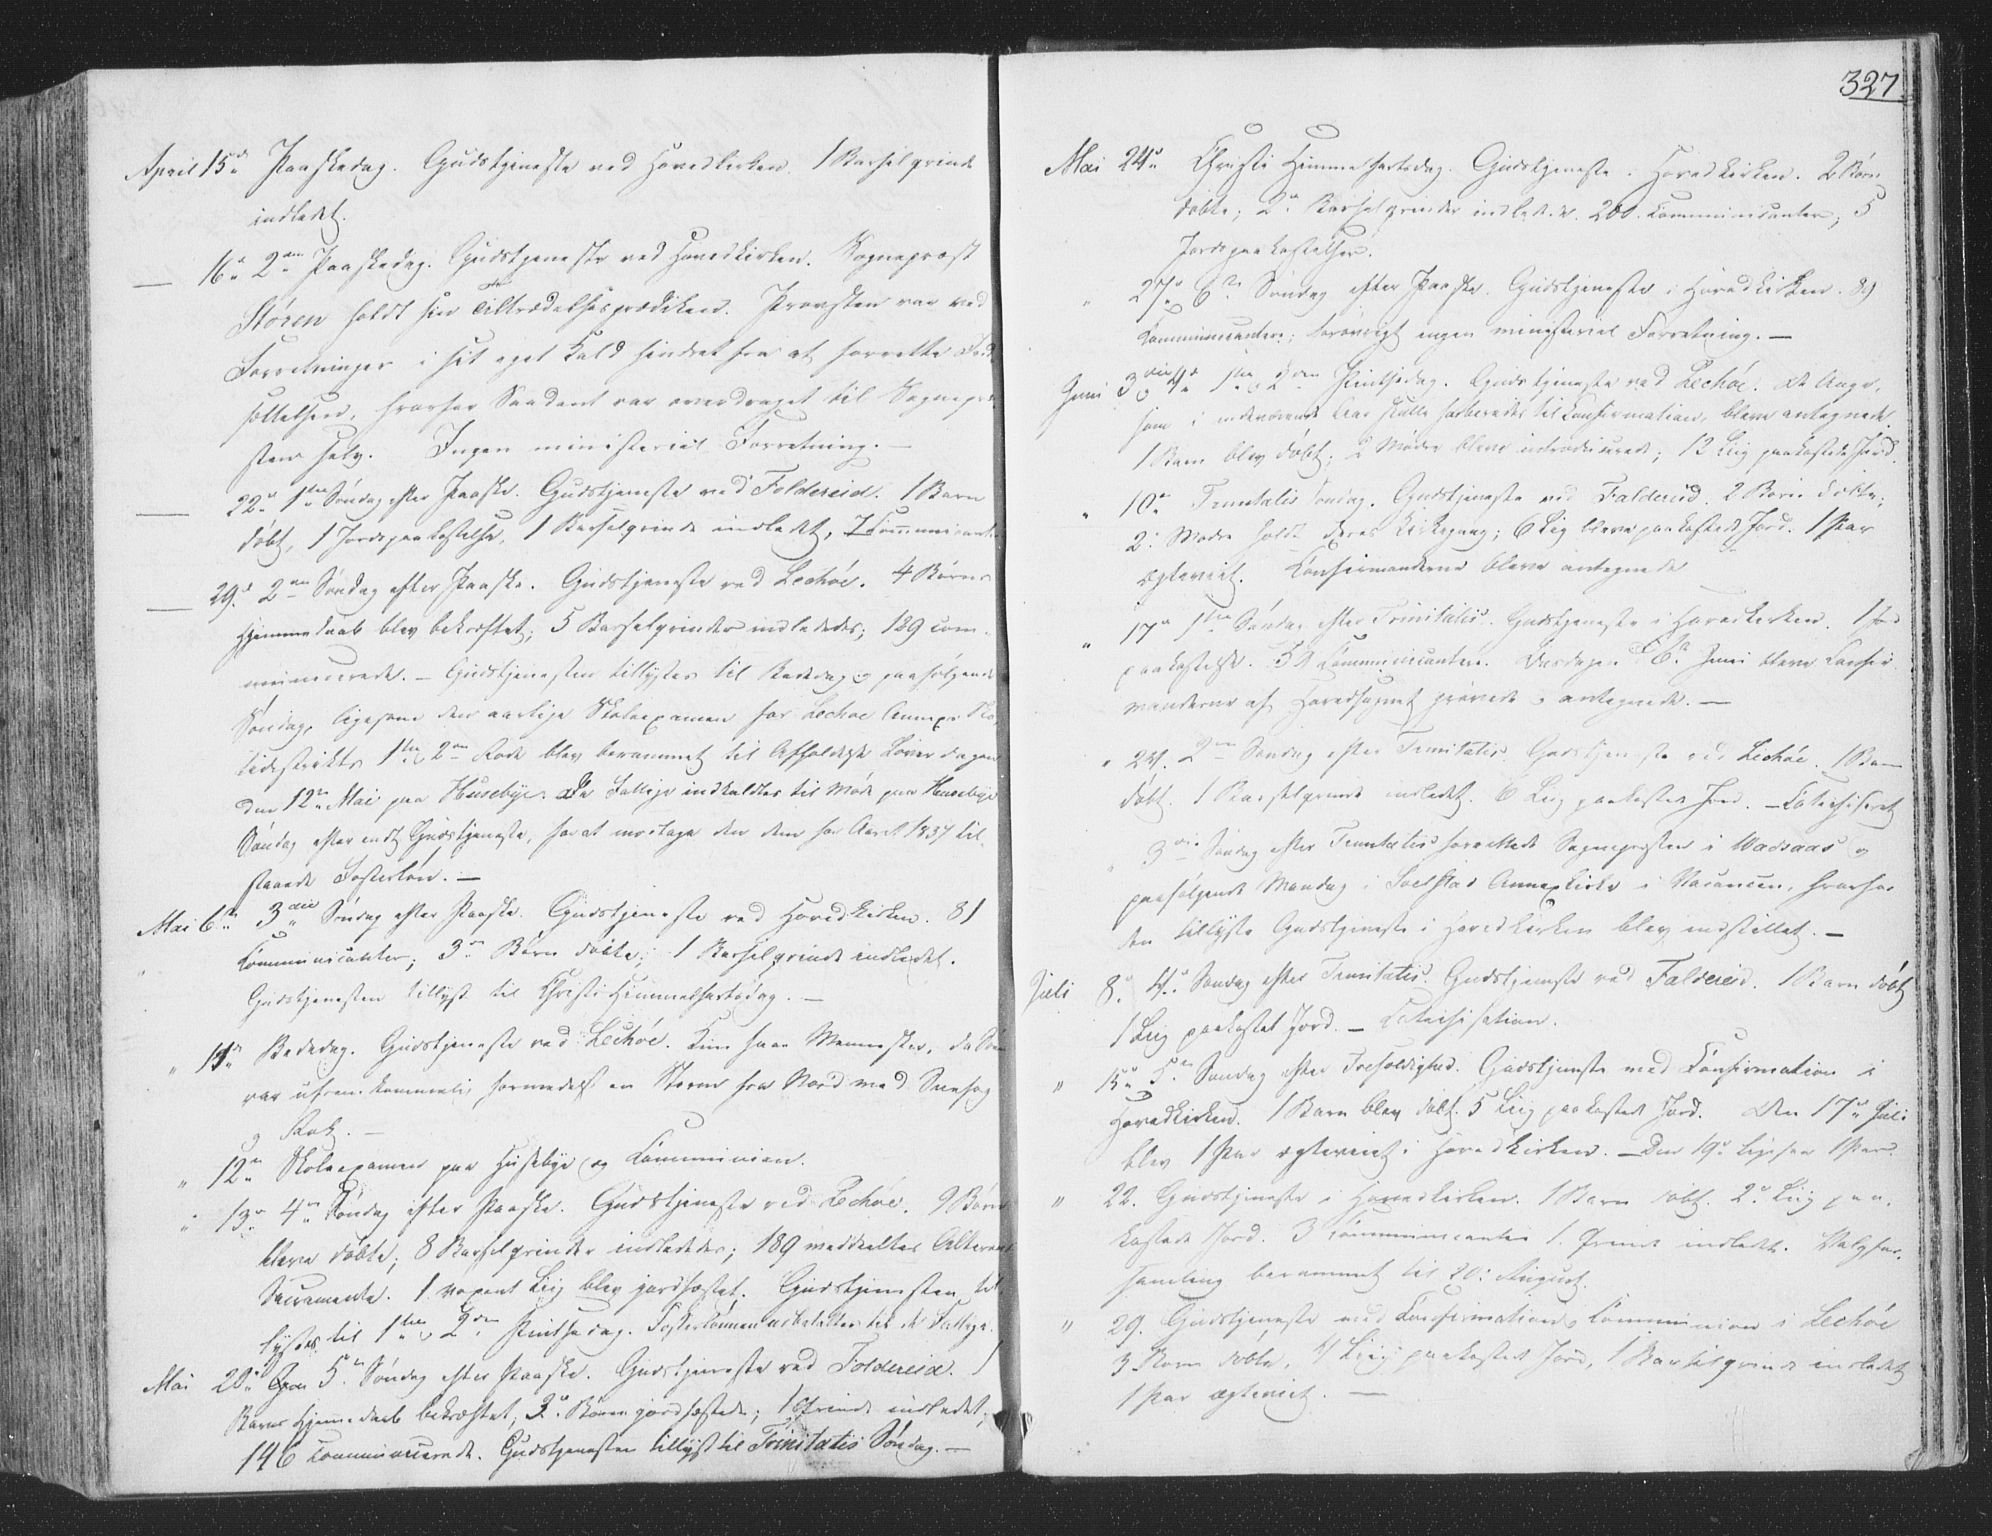 April 15de Paaskedag. Gudstjeneste ved Hovedkirken. 1 Barselqvinde
indledet.
— 16de 2den Paaskedag. Gudstjeneste ved Hovedkirken. Sognepræst
Støren holdt sin Tiltrædelsesprædiken. Provsten var ved
Forretninger i sit eget Kald hindret fra at forrette
hvorfor Saadant var overdraget til
selv. Ingen ministeriel Forretning. —
— 22de 1ste Søndag efter Paaske. Gudstjeneste ved Foldereid. 1 Barn
døbt, 1 Jordspaakastelse, 1 Barselqvinde indledet, 7 Communicanter
— 29de 2den Søndag efter Paaske. Gudstjeneste ved Lechøe. 4 Børns
Hjemmedaab blev bekræftet; 5 Barselqvinder indlededes; 129 com-
municerede. — Gudstjenesten tillystes til Bededag og paafølgende
Søndag, ligesom den aarlige Skoleexamen for Lechøe Annex
1ste og 2den Rode blev berammet til Afholdelse Løverdagen
den 12te Mai paa Husebye. De Fattige indkaldtes til Møde paa Husebye
Søndag efter endt Gudstjeneste, for at modtage den dem for Aaret 1837 til-
staaede Fosterløn. —
Mai 6te 3die Søndag efter Paaske. Gudstjeneste ved Hovedkirken. 81
Communicanter; 3de Børn døbte; 1 Barselqvinde indledet.
Gudstjenesten tillyst til Christi Himmelfartsdag. —
" 11te Bededag. Gudstjeneste ved Lechøe. Kun faae Mennesker, da Søen
var ufremkommelig formedelst en Storm fra Nord med Snefog
og
" 12te Skoleexamen paa Husebye og Communion.
" 13de 4de Søndag efter Paaske. Gudstjeneste ved Lechøe. 9 Børn
bleve døbte; 8 Barselqvinder indlededes; 189 meddeeltes Alterens
Sacramente. 1 voxent Liig blev jordfæstet. Gudstjenesten til-
lystes til 1ste og 2den Pintsedag. Fosterlønnen udbetaltes til de Fattige.
Mai 20de 5te Søndag efter Paaske. Gudstjeneste ved Foldereid. 1
Barns Hjemmedaab bekræftet, 3de Børn jordfæstede; 1 Qvinde indledet;
146 communicerede. Gudstjenesten tillyst til Trinitatis Søndag. —
327
Mai 24de Christi Himmelfartsdag. Gudstjeneste i Hovedkirken. 2 Børn
døbte; 2de Barselqvinder indlede. 200 Communicanter; 5
Jordspaakastelser.
" 27de 6te Søndag efter Paaske. Gudstjeneste i Hovedkirken. 89
Communicantere; forøvrigt ingen ministeriel Forretning. —
Juni 3die og 4de 1ste og 2den Pintsedag. Gudstjeneste ved Lechøe. De Unge,
som i indeværende Aar skulle forberedes til Confirmation, bleve antegnede.
1 Barn blev døbt; 2 Mødre bleve introducerede; 12 Liig paakastede Jord.
" 10de Trinitatis Søndag. Gudstjeneste ved Foldereid. 2 Børn døbte;
2de Mødre holdt deres Kirkegang; 6 Liig bleve paakastede Jord. 1 Par
ægteviet. Confirmanderne bleve antegnede
" 17de 1ste Søndag efter Trinitatis. Gudstjeneste i Hovedkirken. 1 Jord
paakastelse. 59 Communicantere. Juni bleve Confir-
manderne af Hovedsognet prøvede og antegnede. —
" 24. 2den Søndag efter Trinitatis. Gudstjeneste ved Lechøe. 1 Barn
døbt. 1 Barselqvinde indledet. 6 Liig paakastet Jord. — Catechiseret
" 3die Søndag efter Trinitatis forrettede Sognepræsten i og
paafølgende Mandag i Annexkirke i Vacancen, hvorfor
den tillyste Gudstjeneste i Hovedkirken blev indstillet. —
Juli 8de 4de Søndag efter Trinitatis. Gudstjeneste ved Foldereid. 1 Barn døbt
1 Liig paakastet Jord. — Catechisation.
" 15de 5te Søndag efter Trefoldighed. Gudstjeneste med Confirmation i
Hovedkirken. 1 Barn blev døbt. 5 Liig paakastede Jord. Den 17de Juli
blev 1 Par ægteviet i Hovedkirken. — Den 19de ligesaa 1 Par.
" 22. Gudstjeneste i Hovedkirken. 1 Barn døbt. 2de Liig paa-
kastede Jord. 3 Communicanter 1 Qvinde indledt. Valgfor-
samling berammet til 20de August.
" 29. Gudstjeneste med Confirmation og Communion i Lechøe
3 Børn døbte, 4 Liig paakastede Jord, 1 Barselqvinde indledet
1 Par ægteviet. —